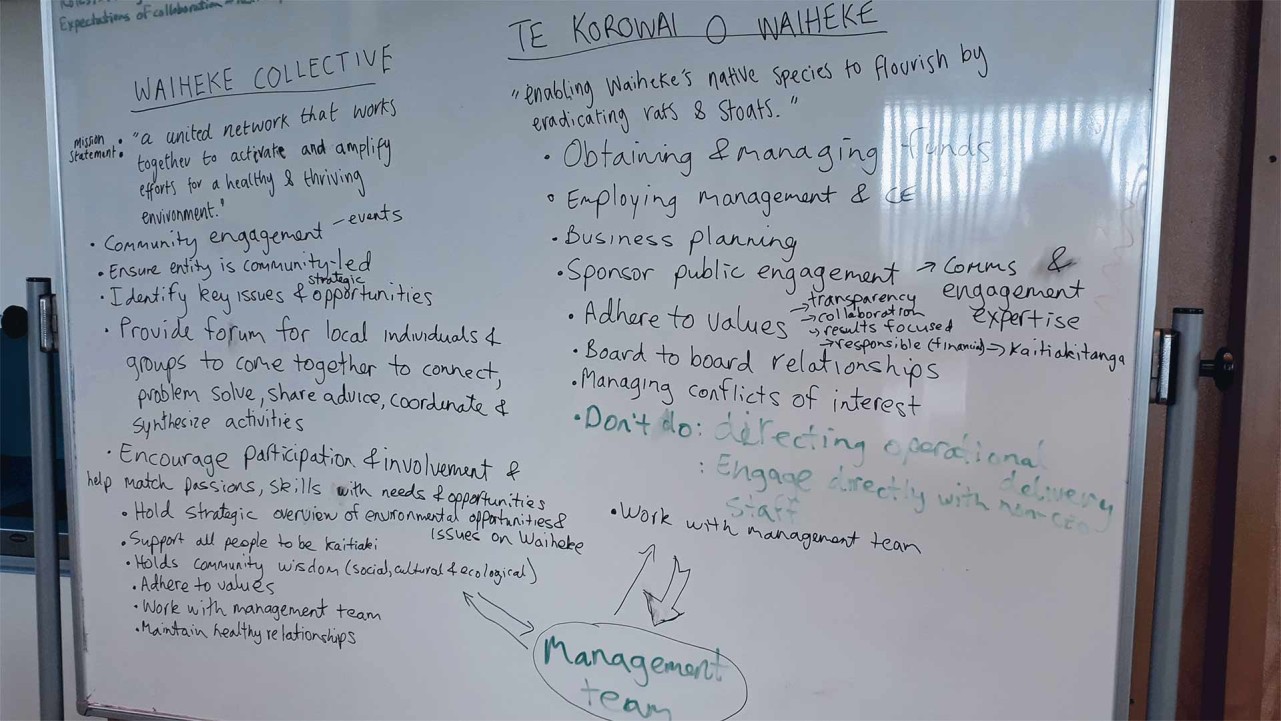 Expectations of collaboration
WAIHEKE COLLECTIVE
Mission
Statement:
"a united network that works
together to activate and amplify
efforts for a healthy & thriving
environment."
• Community engagement – events
• Ensure entity is community-led
• Identify key issues & strategic opportunities
• Provide forum for local individuals &
groups to come together to connect,
problem solve, share advice, coordinate &
synthesize activities
• Encourage participation & involvement &
help match passions, skills with needs & opportunities
• Hold strategic overview of environmental opportunities &
issues on Waiheke
• Support all people to be kaitiaki
• Holds community wisdom (social, cultural & ecological)
• Adhere to values
• Work with management team
• Maintain healthy relationships
TE KOROWAI O WAIHEKE
"enabling Waiheke's native species to flourish by
eradicating rats & stoats."
• Obtaining & managing funds
• Employing management & CE
• Business planning
• Sponsor public engagement → Comms &
engagement
expertise
• Adhere to values → transparency
→ collaboration
→ results focused
→ responsible (financial) → kaitiakitanga
• Board to board relationships
• Managing conflicts of interest
• Don't do: directing operational
delivery
: Engage directly with non-CEO
staff
• Work with management team
Management
team